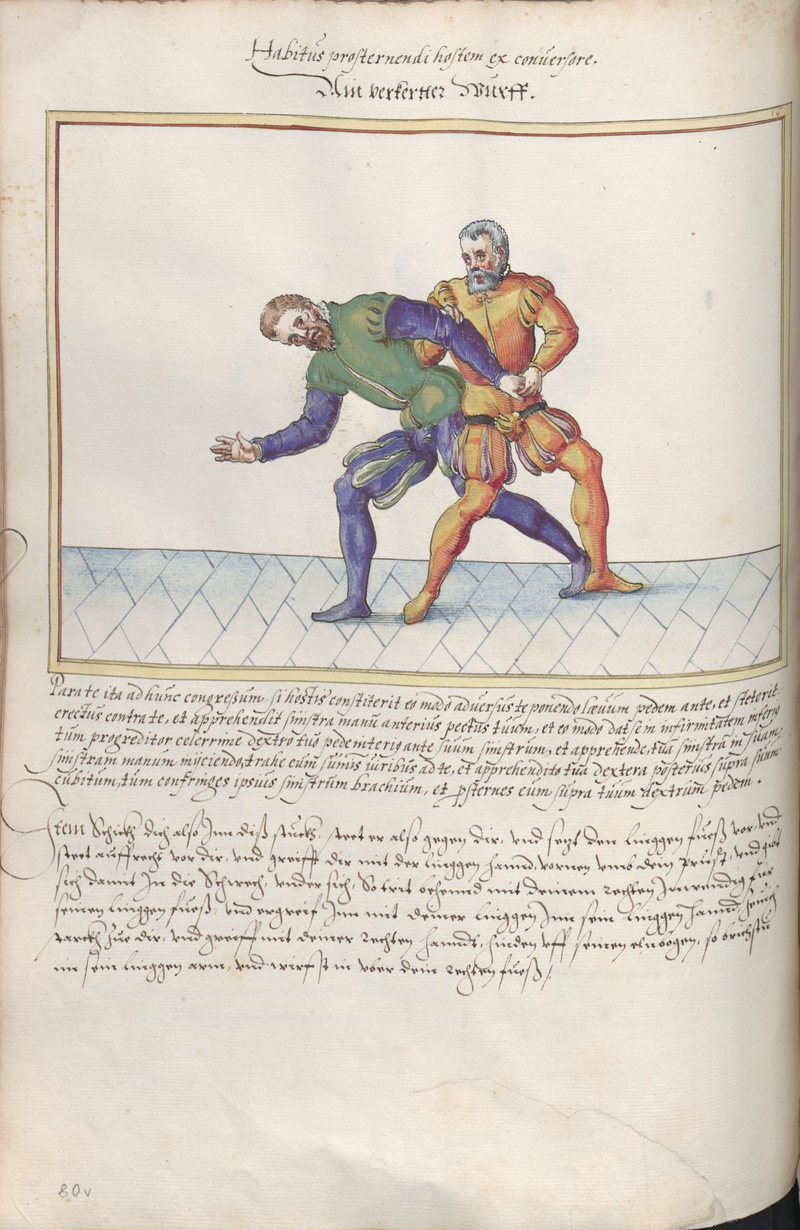 Habitus prosternendi hostem ex conuersore.
Ain verkertter Wurff.
16
Para te ita ad hunc congressum, si hostis constiterit eo modo aduersus te ponendo læuum pedem ante, et steterit
erectus contra te, et apprehendit sinistra manu anterius pectus tuum, et eo modo dat se in infirmitatem inferius
tum progreditor celerrime dextro tuo pede interius ante suum sinistrum, et apprehende, tua sinistra in suam
sinistram manum inijciendo, trahe eum sumis uiribus ad te, et apprehendito tua dextera posterius supra suum
cubitum, tum confringes ipsius sinistrum brachium, et prosternes eum supra tuum dextrum pedem.
Item Schickh dich also Jnn diß stuckh, steet er also gegen dir, vnd setzt den linggen fueß vor, vnd
steet auffrecht vor dir, vnd greifft dir mit der linggen hannd, vornen vmb dein prust, vnd gibt
sich damit Jn die Schwech, vnder sich, So trit behennd mit deinem rechten Jnwendig für
seinen linggen fueß, vnd ergreif Jnn mit deiner linggen Jnn sein linggen hannd,
starckh zue dir, vnd greiff mit deiner rechten hanndt, hinden vff seinen elnbogen, so brichstu
im sein linggen arm, vnd wirfst in vber dein rechten fueß /
80v